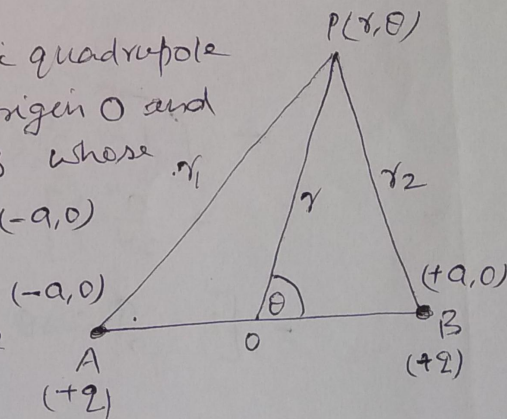 P(r,θ)
c quadrupole
rigin O and
s whose
r₁
(-a,0)
r
r₂
(-a,0)
(+a,0)
θ
B
O
A
(+q)
(+q)